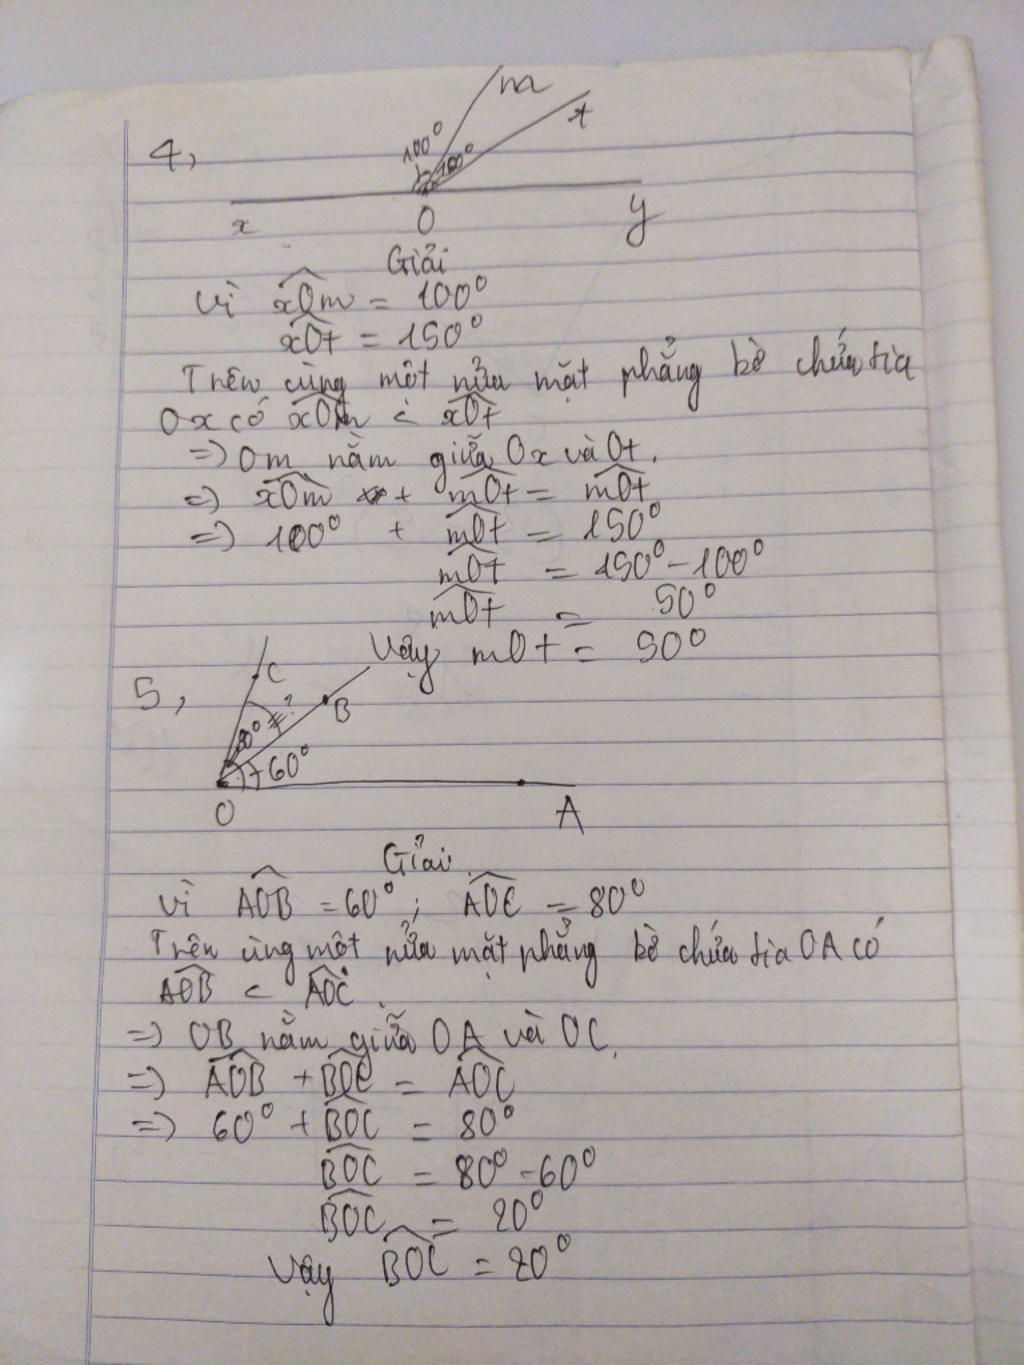 4,
m
t
100°
x
O
y
Giải
Vì xOm = 100°
xOt = 150°
Trên cùng một nửa mặt phẳng bờ chứa tia
Ox có xOm < xOt
=> Om nằm giữa Ox và Ot.
=> xOm + mOt = mOt
=> 100° + mOt = 150°
mOt = 150° - 100°
mOt = 50°
Vậy mOt = 50°
5,
C
?
B
80°
60°
O
A
Giải
Vì AOB = 60° ; AOC = 80°
Trên cùng một nửa mặt phẳng bờ chứa tia OA có
AOB < AOC.
=> OB nằm giữa OA và OC.
=> AOB + BOC = AOC
=> 60° + BOC = 80°
BOC = 80° - 60°
BOC = 20°
Vậy BOC = 20°